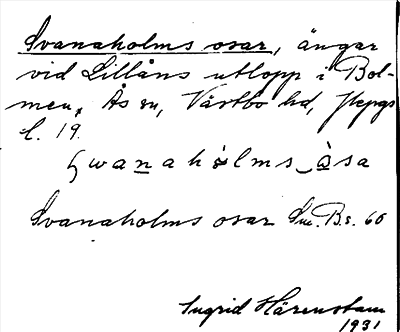 Svanaholms osar, ängar
vid Lillåns utlopp i Bol-
men, Ås sn, Västbo hd, Jkpgs
l. 19.
swanahòlms_àsa
Svanaholms osar Sm. B. s. 60
Ingrid Härenstam
1931